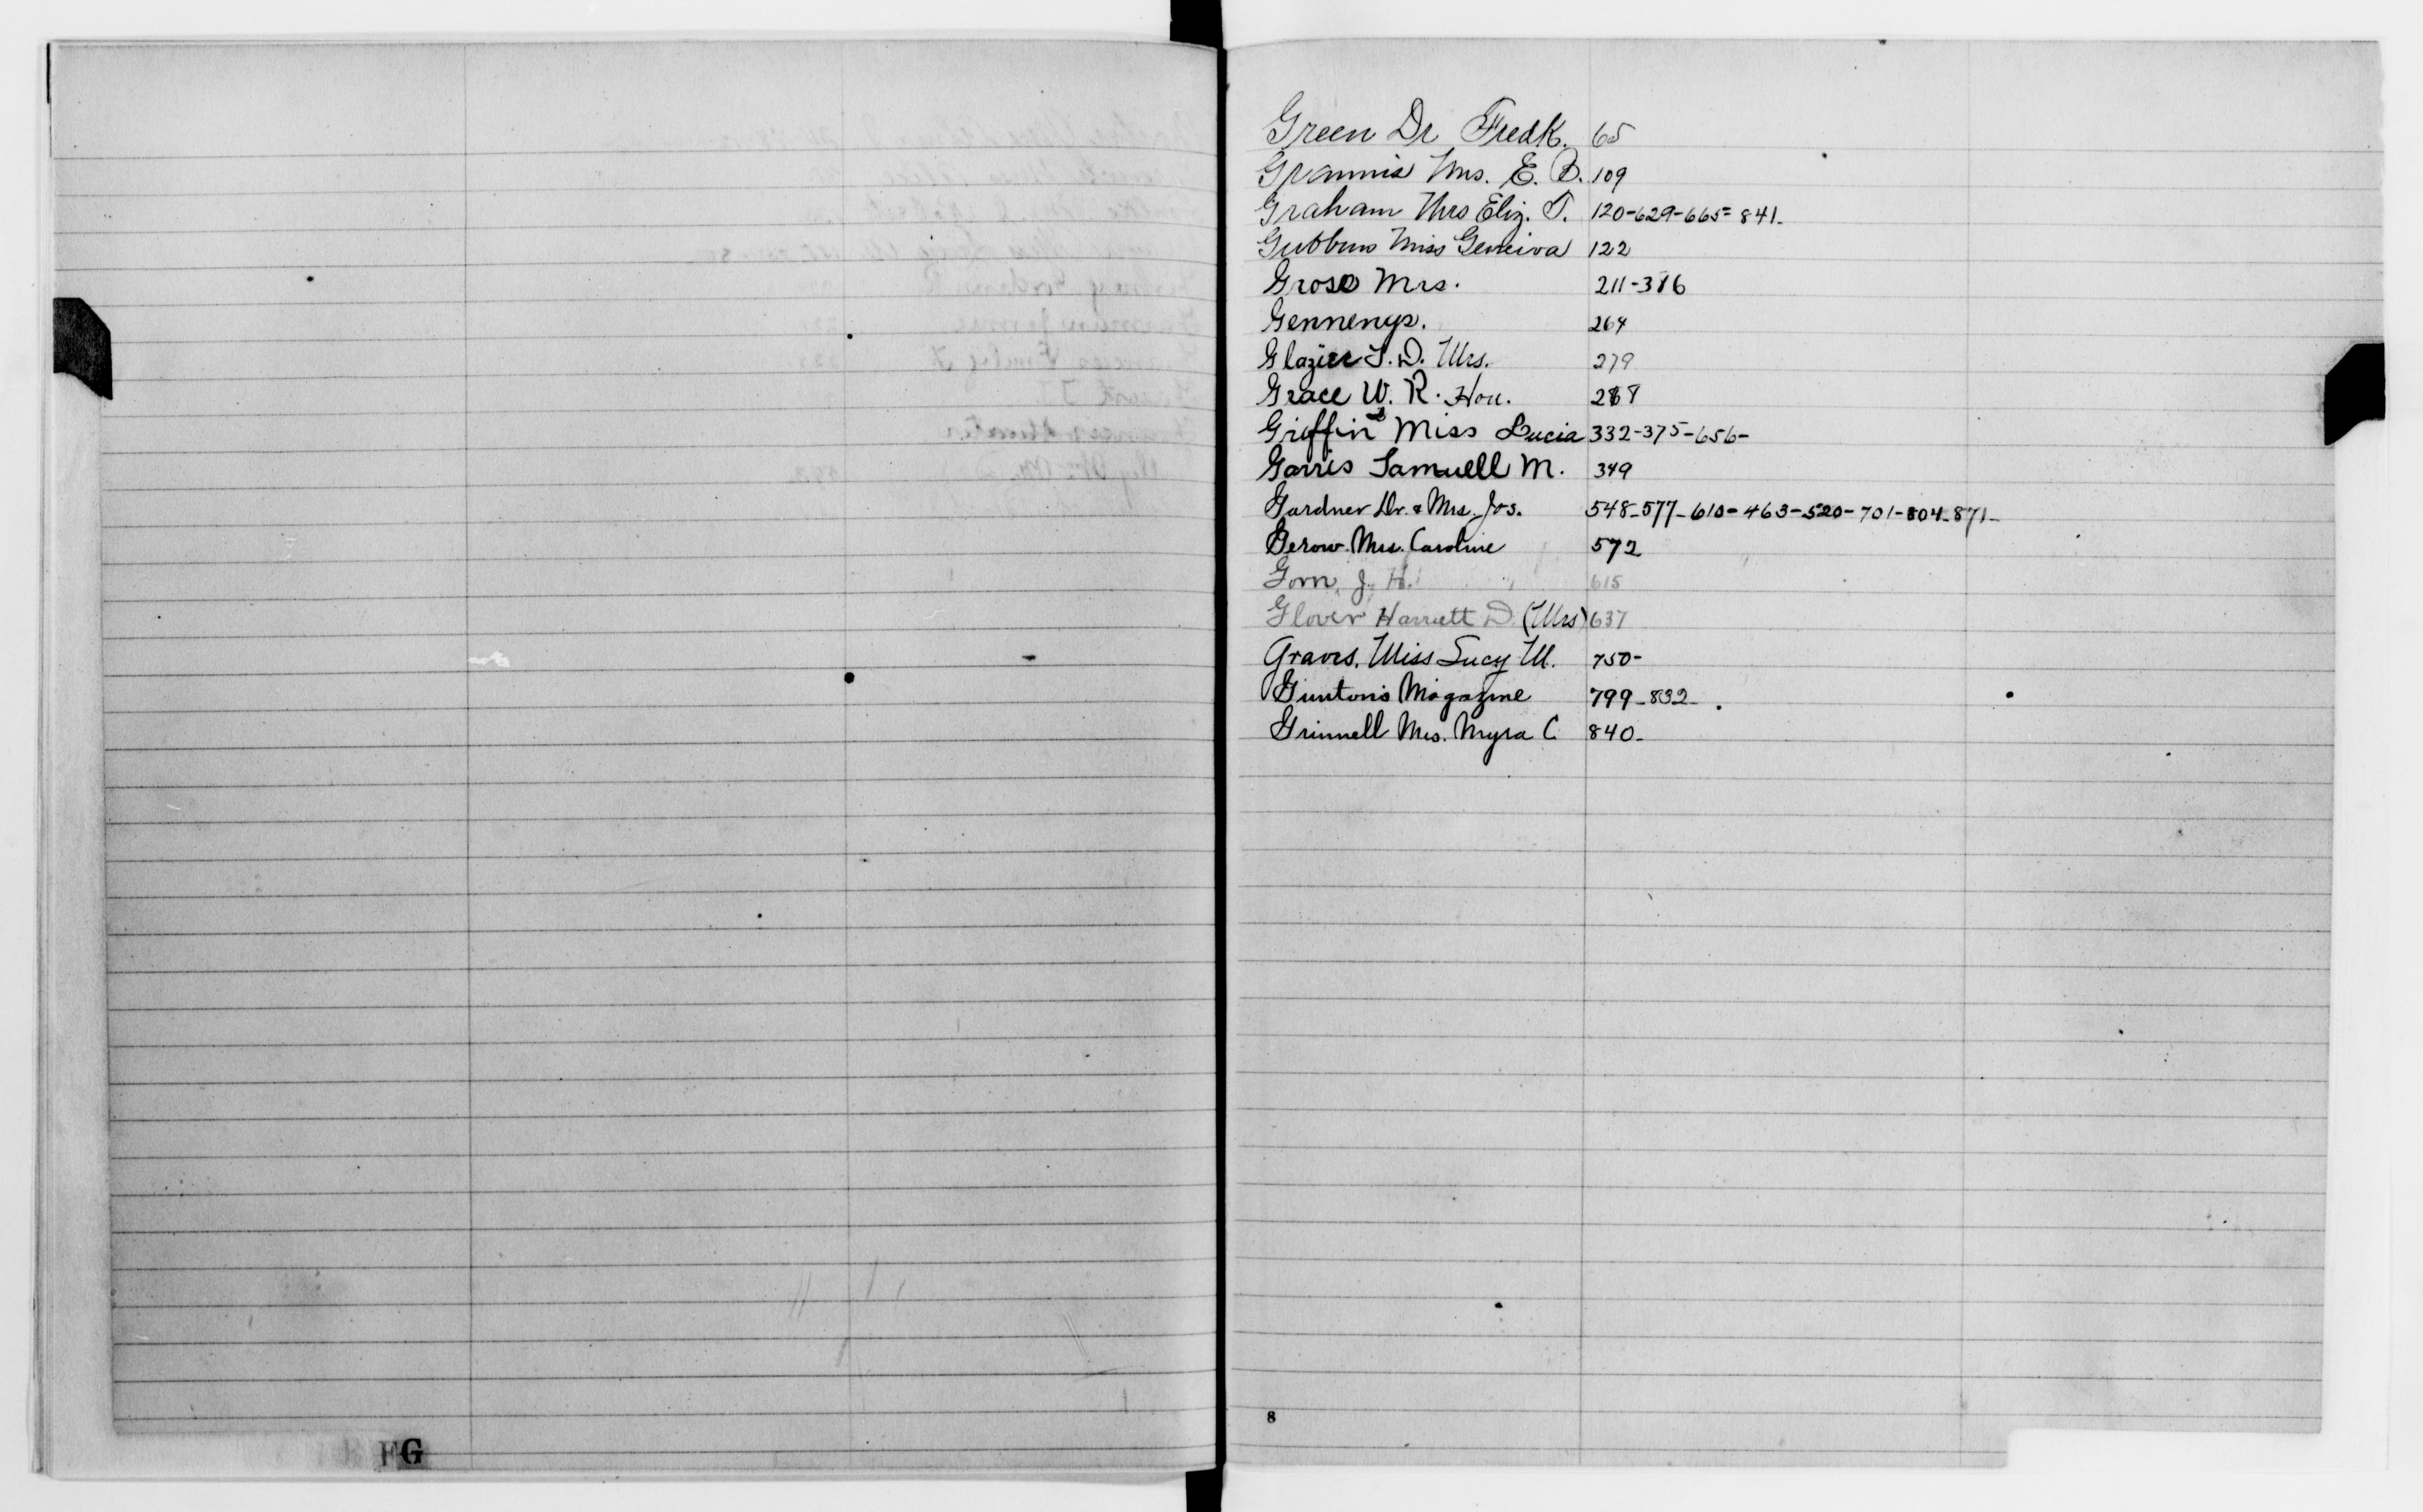 Green Dr Fredk. 65
Grannis Mrs. E. B. 109
Graham Mrs Eliz. T. 120-629-665=841-
Gubbins Miss Geneiva 122
Gross Mrs. 211-386
Gennenys. 264
Glazier S. D. Mrs. 279
Grace W. R. Hon. 288
Griffin Miss Lucia 332-375-656-
Garris Samuell M. 349
Gardner Dr. & Mrs. Jos. 548-577-610-463-520-701-804-871-
Gerow. Mrs. Caroline 572
Gorn, J. H. 615
Glover Harriett D. (Mrs) 637
Graves. Miss Lucy M. 750-
Gunton's Magazine 799-832-
Grinnell Mrs. Myra C 840-
8
FG